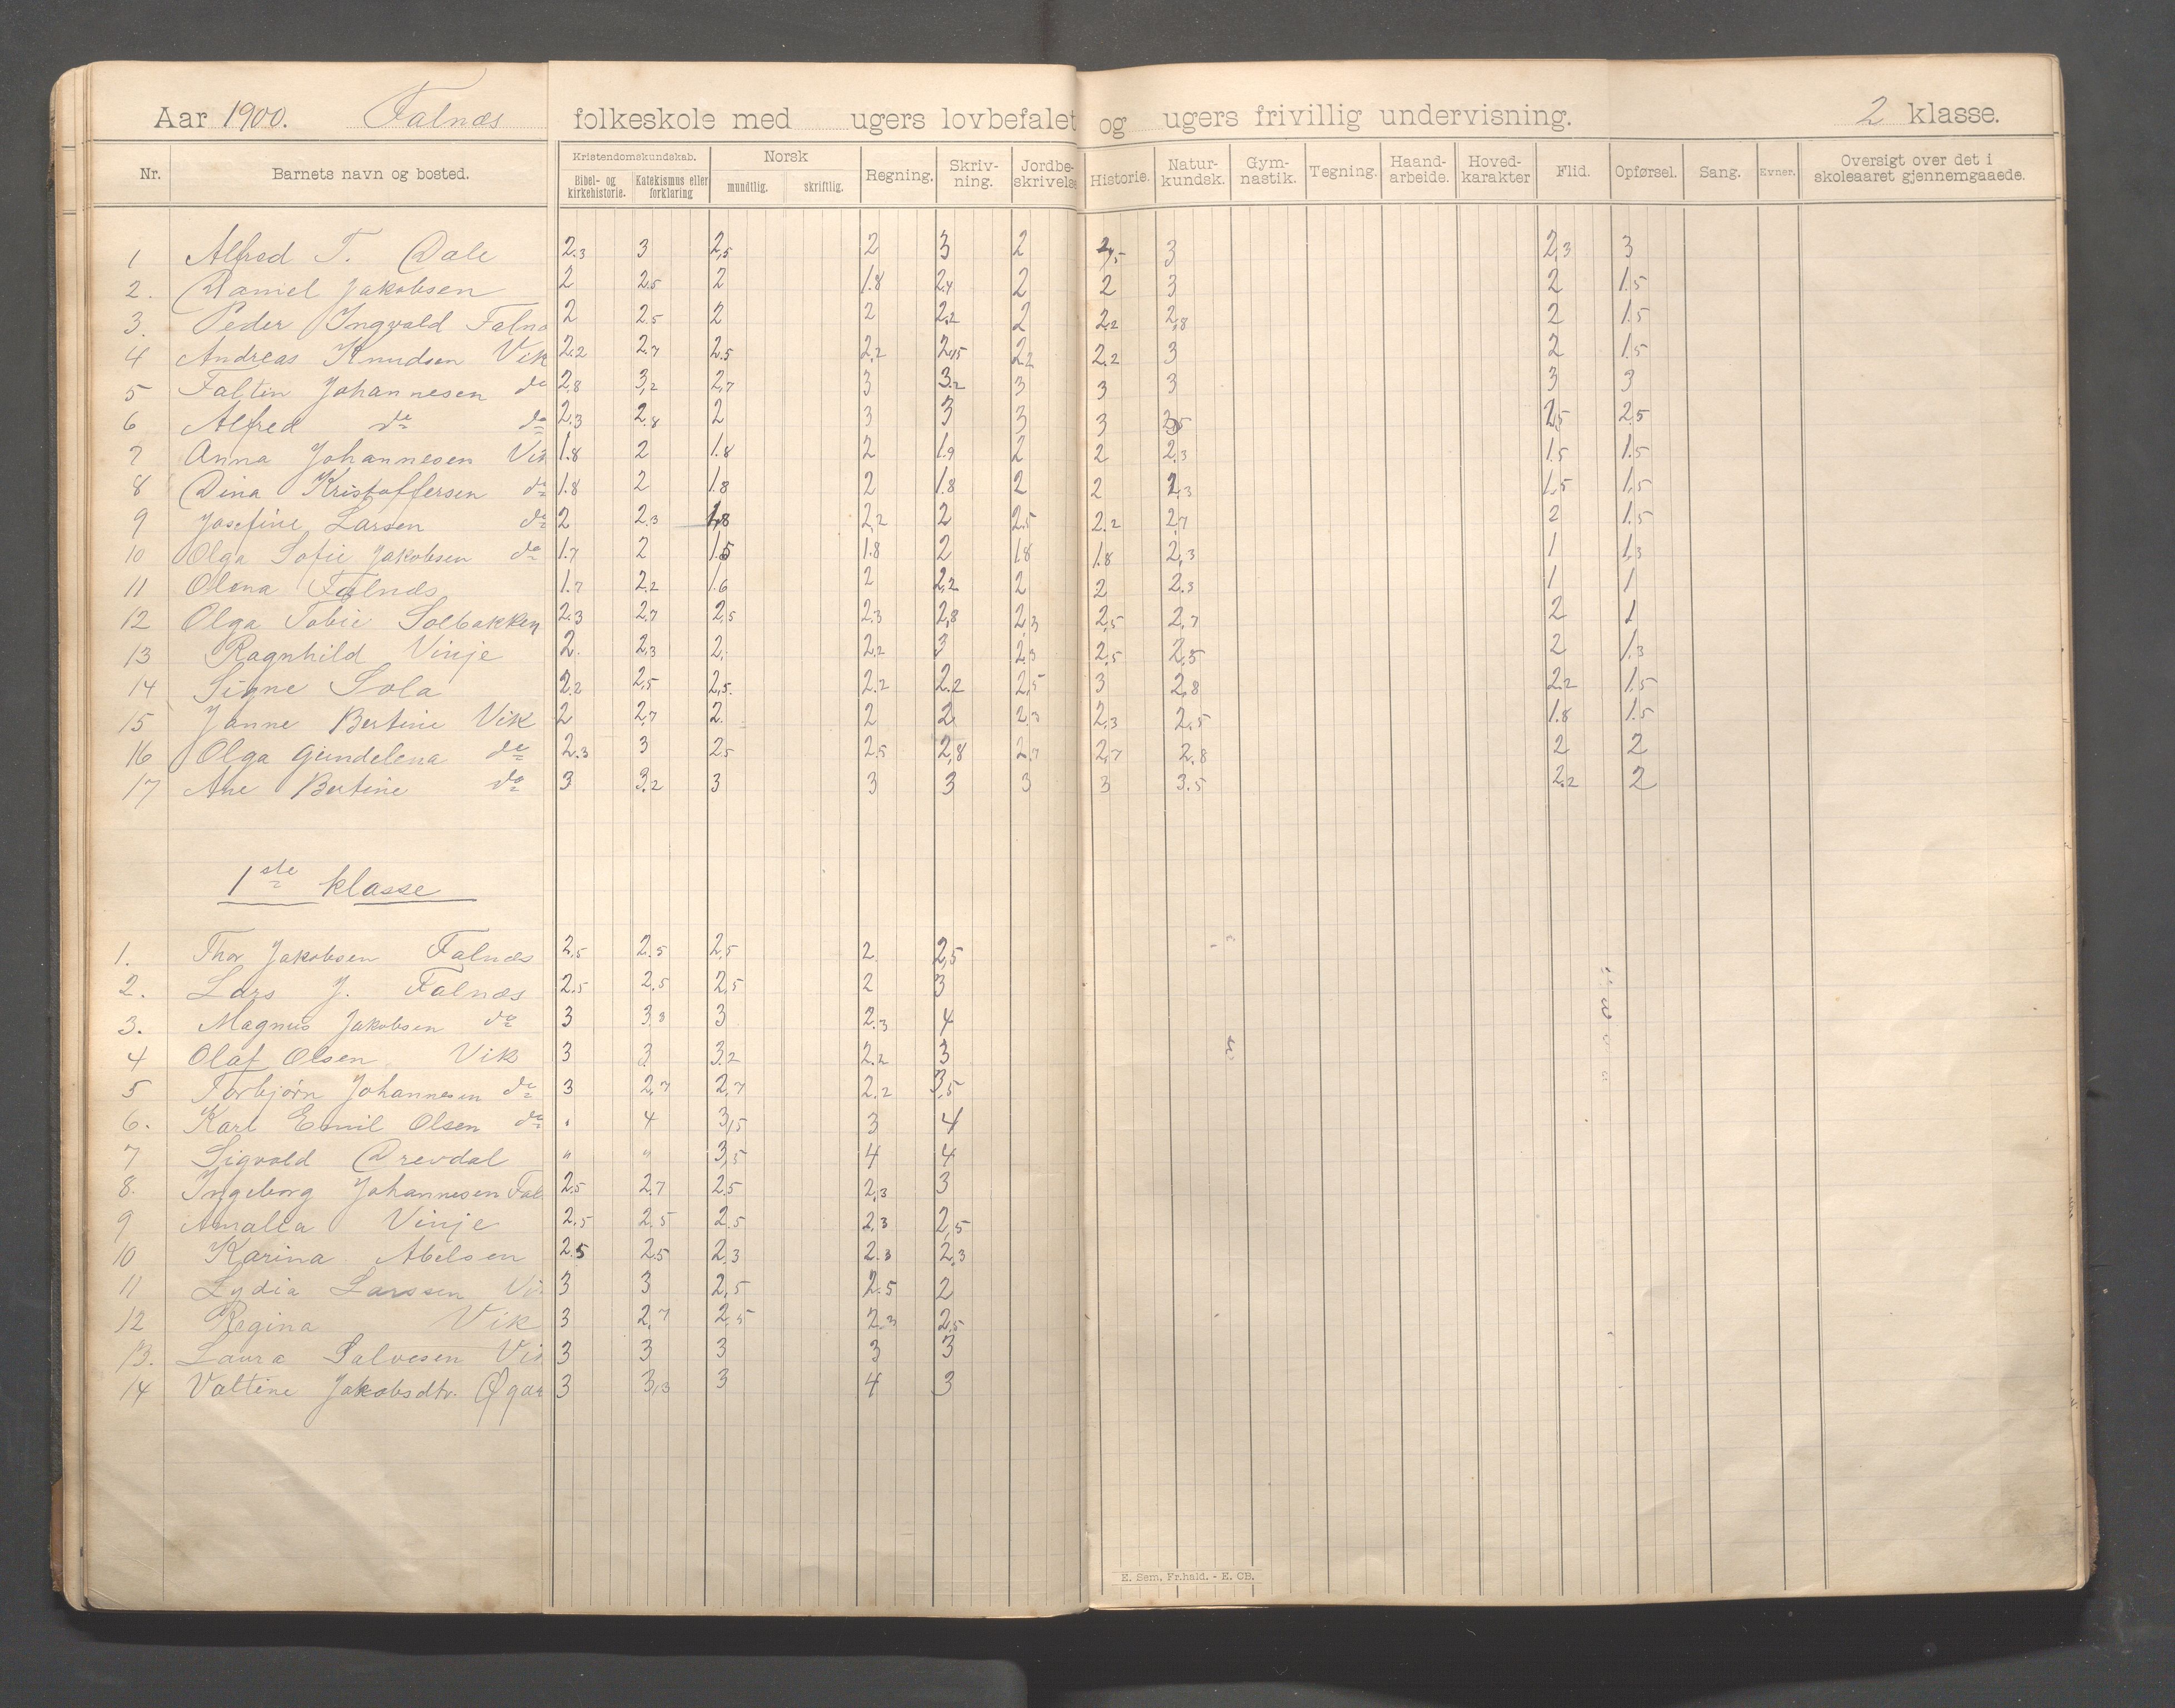 Aar 1900. Falnæs folkeskole med ugers lovbefalet og ugers frivillig undervisning. 2 klasse.
Nr. Barnets navn og bosted. Kristendomskundskab. Bibel- og kirkehistorie. Katekismus eller forklaring Norsk mundtlig. skriftlig. Regning. Skriv-ning. Jordbe-skrivelse Historie. Natur-kundsk. Gym-nastik. Tegning. Haand-arbeide. Hoved-karakter Flid. Opførsel. Sang. Evner. Oversigt over det i skoleaaret gjennemgaaede.
1 Alfred T. Dale 2.3 3 2,5 2 3 2 2,5 3 2,3 3
2. Daniel Jakobsen 2 2.5 2 1.8 2.4 2 2 3 2 1.5
3. Peder Ingvald Falnæ 2 2.5 2 2 2,2 2 2.2 2,8 2 1.5
4 Andreas Knudsen Vik 2.2 2.7 2.5 2,2 2,5 2,2 2.2 3 2 1.5
5 Faltin Johannesen do 2,8 3,2 2,7 3 3.2 3 3 3 3 3
6 Alfred do do 2.3 2.8 2 3 3 3 3 3,5 2,5 2,5
7 Anna Johannesen Vik 1.8 2 1.8 2 1.9 2 2 2.3 1.5 1.5
8 Dina Kristoffersen do 1.8 2 1.8 2 1.8 2 2 2,3 1.5 1,5
9 Josefine Larsen do 2 2.3 1,8 2,2 2 2,5 2.2 2,7 2 1.5
10 Olga Sofie Jakobsen do 1.7 2 1.5 1.8 2 1.8 1.8 2,3 1 1,3
11 Olena Falnæs 1.7 2.2 1.6 2 2,2 2 2 2.3 1 1
12 Olga Tobie Solbakken 2.3 2.7 2,5 2,3 2,8 2,3 2,5 2,7 2 1
13 Ragnhild Vinje 2. 2,3 2, 2,2 3 2,3 2,5 2,5 2 1,3
14 Signe Sola 2.2 2,5 2,5. 2.2 2.2 2,5 3 2,8 2.2 1,5
15 Janne Bertine Vik 2 2,7 2. 2 2 2,3 2,3 2,5 1.8 1.5
16 Olga Gundelena do 2.3 3 2,5 2,5 2,8 2,7 2,7 2.8 2 2
17 Ane Bertine do 3 3,2 3 3 3 3 3 3.5 2.2 2
1ste klasse
1. Thor Jakobsen Falnæs 2,5 2.5 2,5 2 2,5
2. Lars J. Falnæs 2.5 2,5 2,5 2 3
3. Magnus Jakobsen do 3 3,3 3 2.3 4
4 Olaf Olsen Vik 3 3 3,2 2.2 3
5 Torbjørn Johannesen do 3 2,7 2,7 2.2 3,5
6. Karl Emil Olsen do " 4 3,5 3 4
7 Sigvald Drevdal " " 3,5 4 4
8. Ingeborg Johannesen Fal 2,5 2.7 2,5 2,3 3
9 Amalia Vinje 2.5 2,5 2.5 2,3 2,5
10 Karina Abelsen 2.5 2,5 2,3 2.3 2,3
11 Lydia Larssen Vi 3 3 2,5 2.5 2
12 Regina Vik 3 2,7 2,5 2.3 2,5
13. Laura Salvesen Vik 3 3 3 3 3
14 Valtine Jakobsdtr. Øgar 3 3,3 3 4 3
E. Sem, Fr.hald. - E. CB.